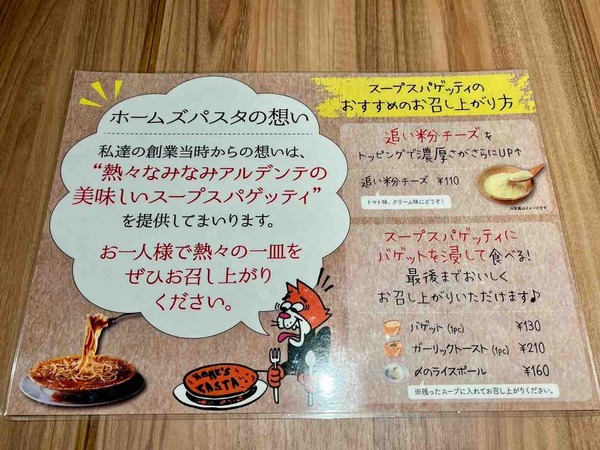 ホームズパスタの想い
私達の創業当時からの想いは、
“熱々なみなみアルデンテの
美味しいスープスパゲッティ”
を提供してまいります。
お一人様で熱々の一皿を
ぜひお召し上がり
ください。
HOME'S
PASTA
スープスパゲッティの
おすすめのお召し上がり方
追い粉チーズを
トッピングで濃厚さがさらにUP↑
追い粉チーズ ¥110
トマト味、クリーム味にどうぞ!
※写真はイメージです
スープスパゲッティに
バゲットを浸して食べる!
最後までおいしく
お召し上がりいただけます♪
バゲット (1pc) ¥130
ガーリックトースト (1pc) ¥210
〆のライスボール ¥160
※残ったスープに入れてお召し上がりください。